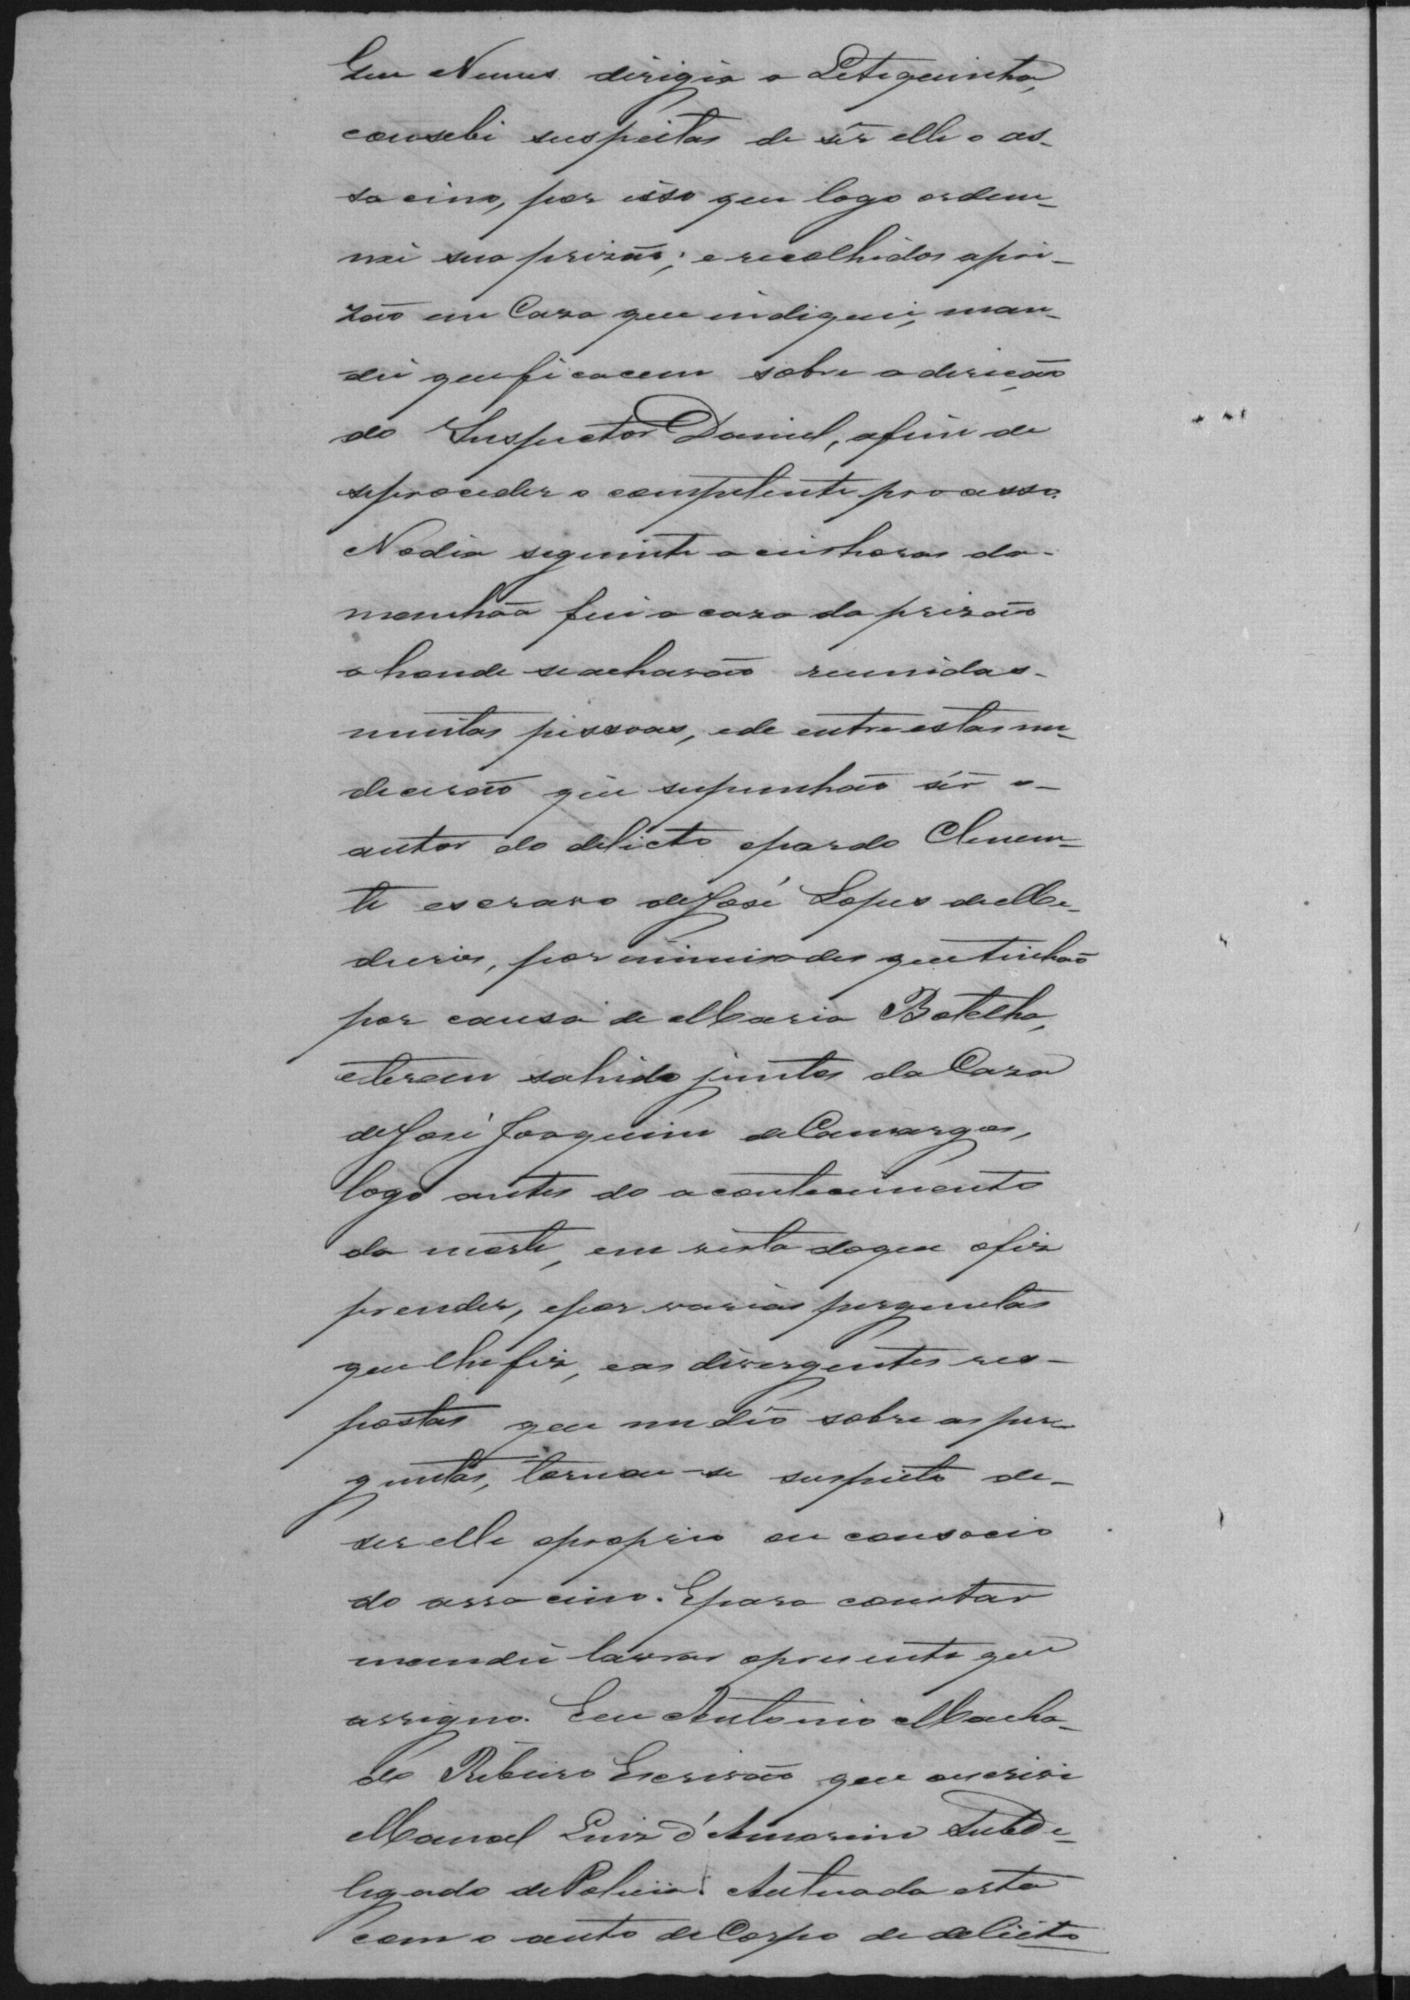 que Nunes dirigio a Petiquinho,
consebi suspeitas de sêr elle o as-
sacino, por isso que logo ordem-
nei sua prizão; e recolhidos apri-
zão em Caza que indiquei, man-
dei queficacem sobre a direcção
do Inspector Daniel, afim de
seproceder o competente processo.
Nodia seguinte a seis horas da-
manhãa fui a caza da prizão
a honde seacharão reunidas-
muitas pessoas, ede entre estas me
decerão que supunhão sêr o-
autor do delicto opardo Clemen-
te escravo deJosé Lopes deMe-
deiros, por inimisades que tinhão
por causa de Maria Botelha,
eterem sahido juntos da Caza
deJosé Joaquim deCamargos,
logo antes do acontecimento
da morte, em vista doque ofiz
prender, epor varias perguntas
que lhe fiz, eas divergentes res-
postas que me dêo sobre as per-
guntas, tornou-se suspeito de-
ser elle oproprio ou consocio
do assacino. Epara constar
mandei lavrar opresente que
assigno. Eeu Antonio Macha-
do Ribeiro Escrivão que escrivi
Manoel Luiz d'Amorim Subde-
legado dePolicia. Autuada esta
com o auto de Corpo de delicto